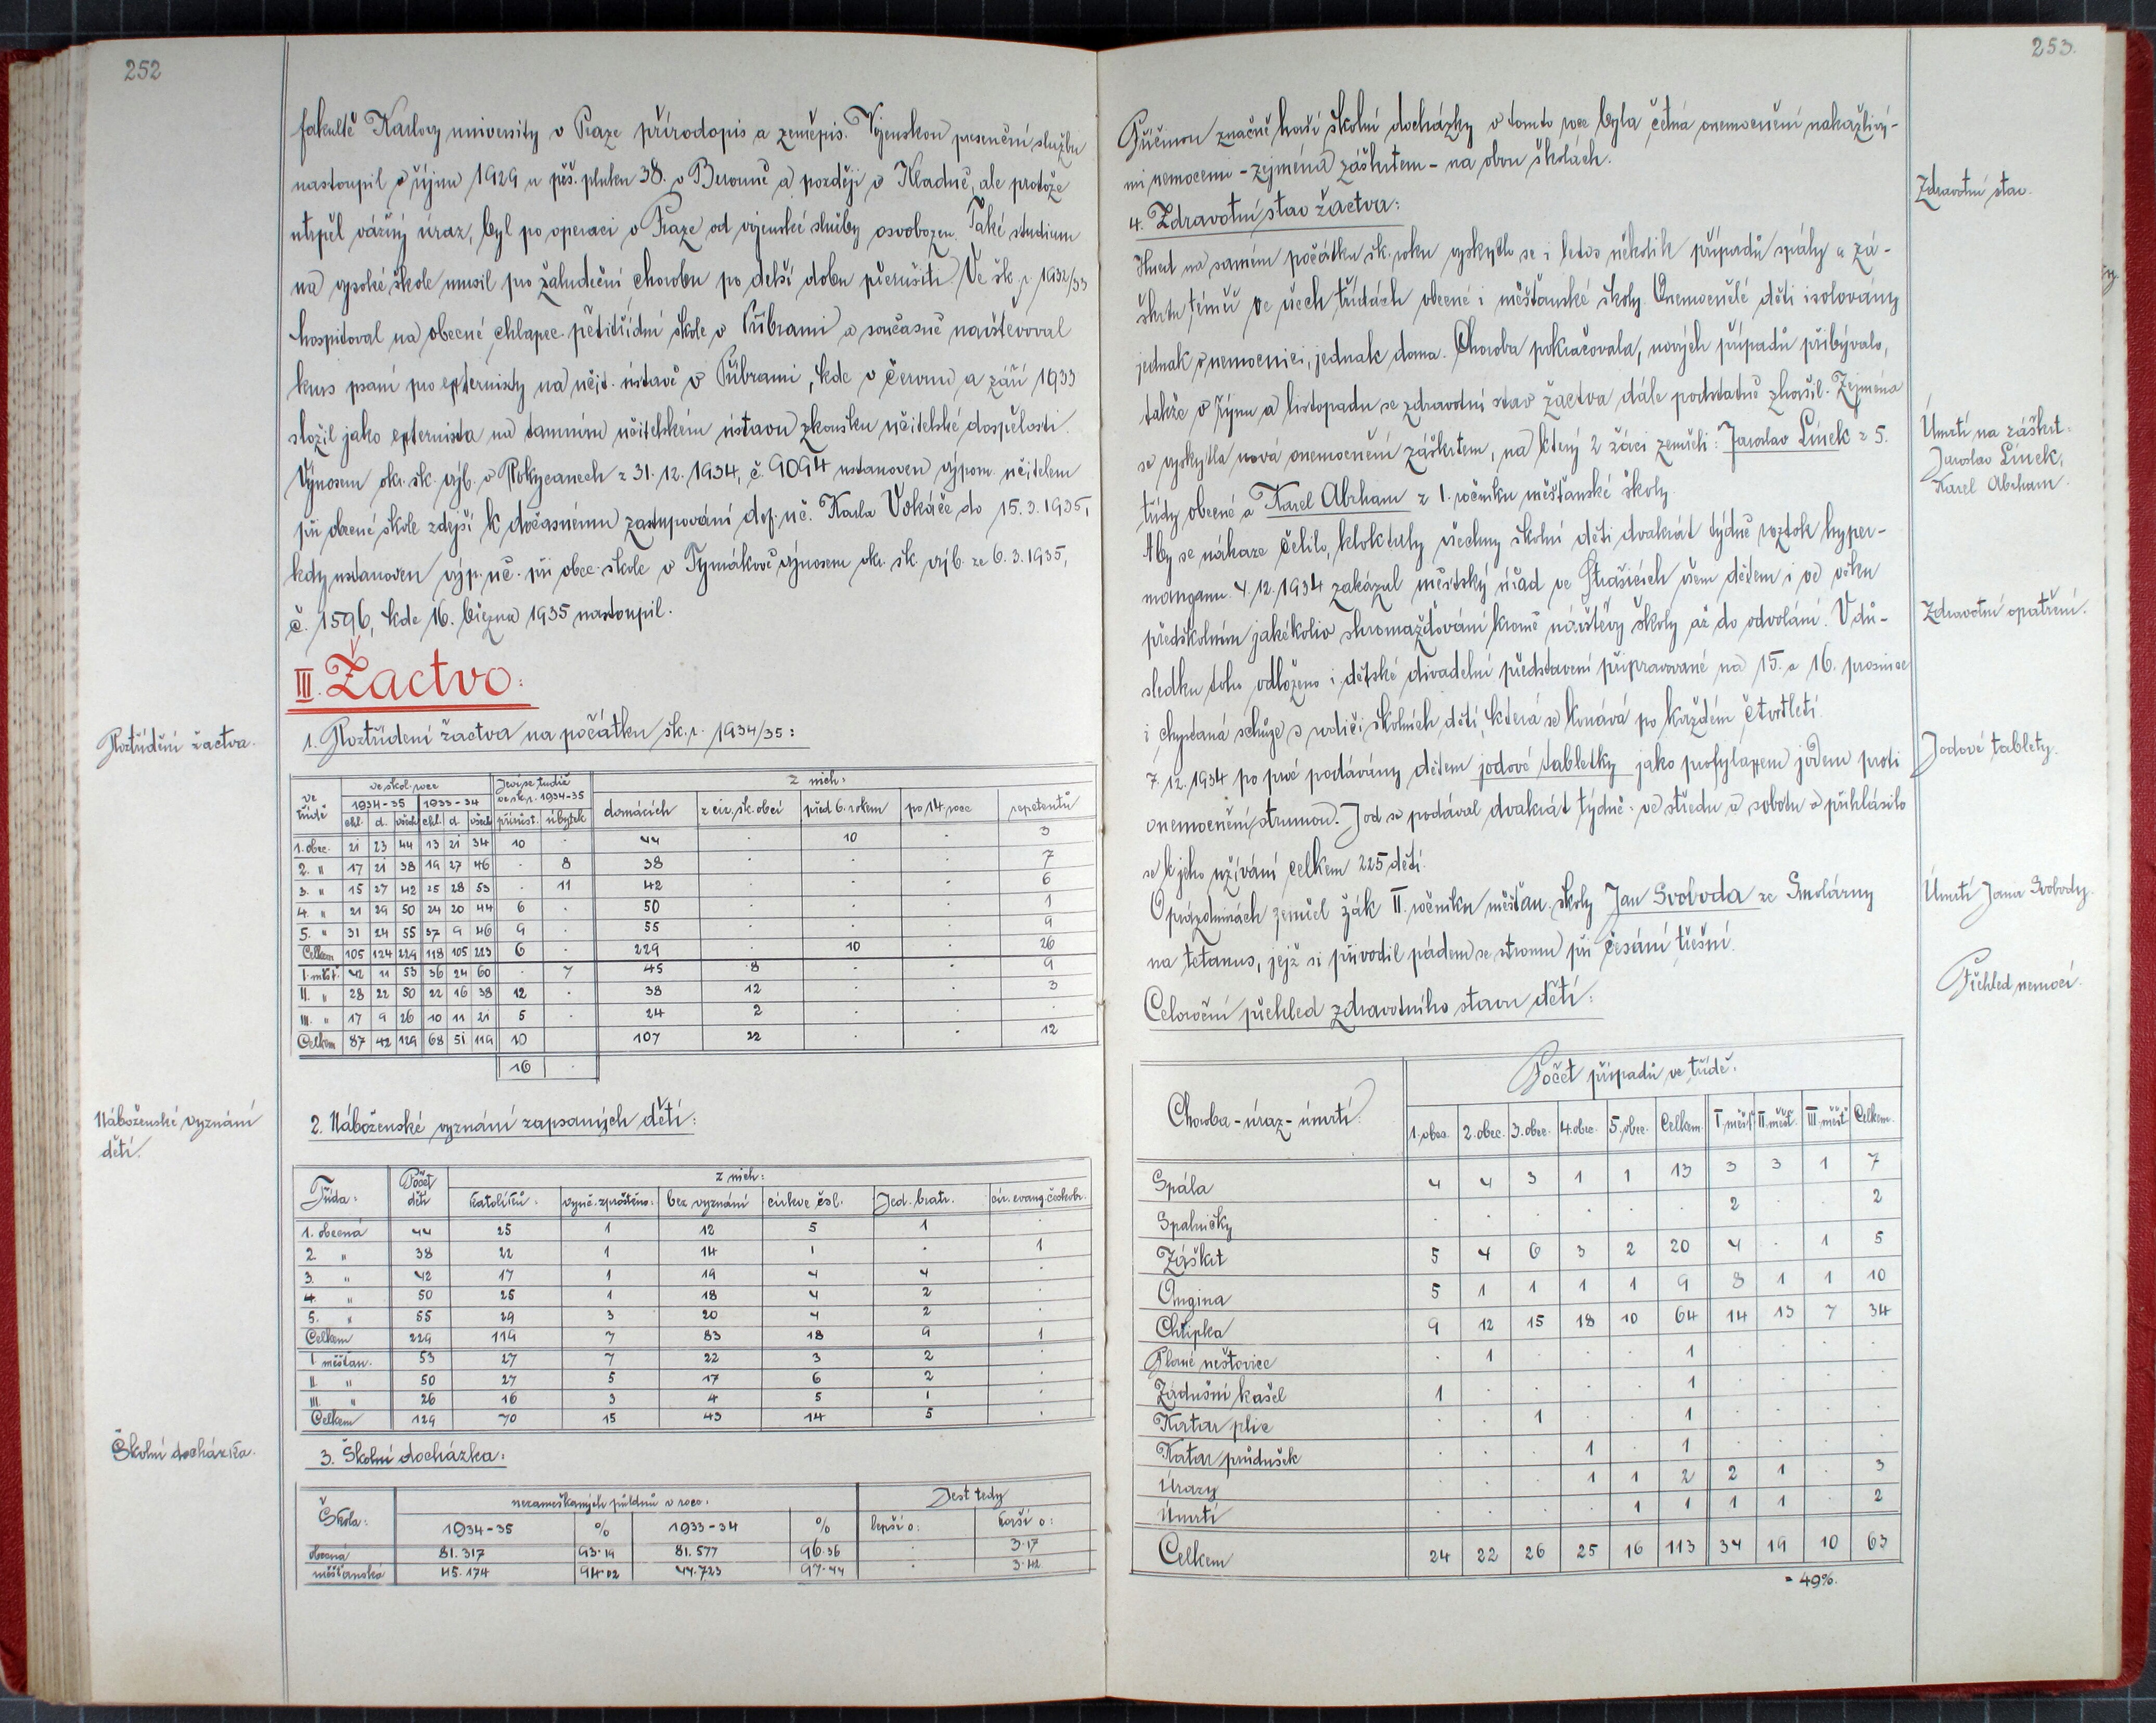 252
fakultě Karlovy university v Praze přírodopis a zeměpis. Vojenskou presenční službu
nastoupil v říjnu 1929 u pěš. pluku 38. v Berouně a později v Kladně, ale protože
utrpěl vážný úraz, byl po operaci v Praze od vojenské služby osvobozen. Také studium
na vysoké škole musil pro žaludeční chorobu po delší dobu přerušiti. Ve šk. r. 1932/33
hospitoval na obecné chlapec. pětitřídní škole v Příbrami a současně navštěvoval
kurs psaní pro externisty na učit. ústavě v Příbrami, kde v červnu a září 1933
složil jako externista na tamním učitelském ústavu zkoušku učitelské dospělosti.
Výnosem okr. šk. výb. v Rokycanech z 31. 12. 1934, č. 9094 ustanoven výpom. učitelem
při obecné škole zdejší k dočasnému zastupování def. uč. Karla Vokáče do 15. 3. 1935,
kdy ustanoven výp. uč. při obec. škole v Tymákově výnosem okr. šk. výb. ze 6. 3. 1935,
č. 1596, kde 16. března 1935 nastoupil.
III. Žactvo:
Roztřídění žactva.
1. Roztřídení žactva na počátku šk. r. 1934/35:
ve třídě ve škol. roce Jeví se tudíž ve šk. r. 1934-35 z nich:
1934-35 1933-34
chl. d. všech chl. d. všech přírůst. úbytek domácích z ciz. šk. obcí před 6. rokem po 14. roce repetentů
1. obec. 21 23 44 13 21 34 10 . 44 . 10 . 3
2. " 17 21 38 19 27 46 . 8 38 . . . 7
3. " 15 27 42 25 28 53 . 11 42 . . . 6
4. " 21 29 50 24 20 44 6 . 50 . . . 1
5. " 31 24 55 37 9 46 9 . 55 . . . 9
Celkem 105 124 229 118 105 223 6 . 229 . 10 . 26
I. měšť. 42 11 53 36 24 60 . 7 45 8 . . 9
II. " 28 22 50 22 16 38 12 . 38 12 . . 3
III. " 17 9 26 10 11 21 5 . 24 2 . . .
Celkem 87 42 129 68 51 119 10 107 22 . . 12
16 .
Náboženské vyznání
dětí.
2. Náboženské vyznání zapsaných dětí:
Třída: Počet dětí z nich:
katolíků: vyuč. zproštěno: bez vyznání církve čsl. Jed. bratr. cír. evang. českobr.
1. obecná 44 25 1 12 5 1 .
2. " 38 22 1 14 1 . 1
3. " 42 17 1 19 4 4 .
4. " 50 25 1 18 4 2 .
5. " 55 29 3 20 4 2 .
Celkem 229 119 7 83 18 9 1
I. měšťan. 53 27 7 22 3 2 .
II. " 50 27 5 17 6 2 .
III. " 26 16 3 4 5 1 .
Celkem 129 70 15 43 14 5 .
Školní docházka.
3. Školní docházka:
Škola: nezameškaných půldnů v roce. Jest tedy
1934-35 % 1933-34 % lepší o: horší o:
obecná 81.317 93·19 81.577 96·36 . 3·17
měšťanská 45.174 94·02 44.723 97·44 . 3·42
253.
Příčinou značně horší školní docházky v tomto roce byla četná onemocnění nakažlivý-
mi nemocemi - zejména záškrtem - na obou školách.
Zdravotní stav.
4. Zdravotní stav žactva:
Hned na samém počátku šk. roku vyskytlo se i letos několik případů spály a zá-
škrtu téměř ve všech třídách obecné i měšťanské školy. Onemocnělé děti isolovány
jednak v nemocnici, jednak doma. Choroba pokračovala, nových případů přibývalo,
takže v říjnu a listopadu se zdravotní stav žactva dále podstatně zhoršil. Zejména
se vyskytla nová onemocnění záškrtem, na který 2 žáci zemřeli: Jaroslav Línek z 5.
třídy obecné a Karel Abrham z 1. ročníku měšťanské školy.
Úmrtí na záškrt-
Jaroslav Línek,
Karel Abrham.
Aby se nákaze čelilo, kloktaly všechny školní děti dvakrát týdně roztok hyper-
manganu. 4. 12. 1934 zakázal městský úřad ve Strašicích všem dětem i ve věku
předškolním jakékoliv shromažďování kromě návštěvy školy až do odvolání. V dů-
sledku toho odloženo i dětské divadelní představení připravované na 15. a 16. prosince
i chystaná schůze s rodiči školních dětí, která se konává po každém čtvrtletí.
Zdravotní opatření.
7. 12. 1934 po prvé podávány dětem jodové tabletky jako profylaxem jodem proti
onemocnění strumou. Jod se podával dvakrát týdně - ve středu a sobotu a přihlásilo
se k jeho užívání celkem 225 dětí.
Jodové tablety.
O prázdninách zemřel žák II. ročníku měšťan. školy Jan Svoboda ze Smolárny
na tetanus, jejž si přivodil pádem se stromu při česání třešní.
Úmrtí Jana Svobody.
Celoroční přehled zdravotního stavu dětí:
Přehled nemocí.
Choroba - úraz - úmrtí. Počet případů ve třídě:
1. obec. 2. obec. 3. obec. 4. obec. 5. obec. Celkem. I. měšť. II. měšť. III. měšť. Celkem.
Spála 4 4 3 1 1 13 3 3 1 7
Spalničky . . . . . . 2 . . 2
Záškrt 5 4 6 3 2 20 4 . 1 5
Angina 5 1 1 1 1 9 8 1 1 10
Chřipka 9 12 15 18 10 64 14 13 7 34
Plané neštovice . 1 . . . 1 . . . .
Zádušní kašel 1 . . . . 1 . . . .
Katar plic . . 1 . . 1 . . . .
Katar průdušek . . . 1 . 1 . . . .
Úrazy . . . 1 1 2 2 1 . 3
Úmrtí . . . . 1 1 1 1 . 2
Celkem 24 22 26 25 16 113 34 19 10 63
= 49%.